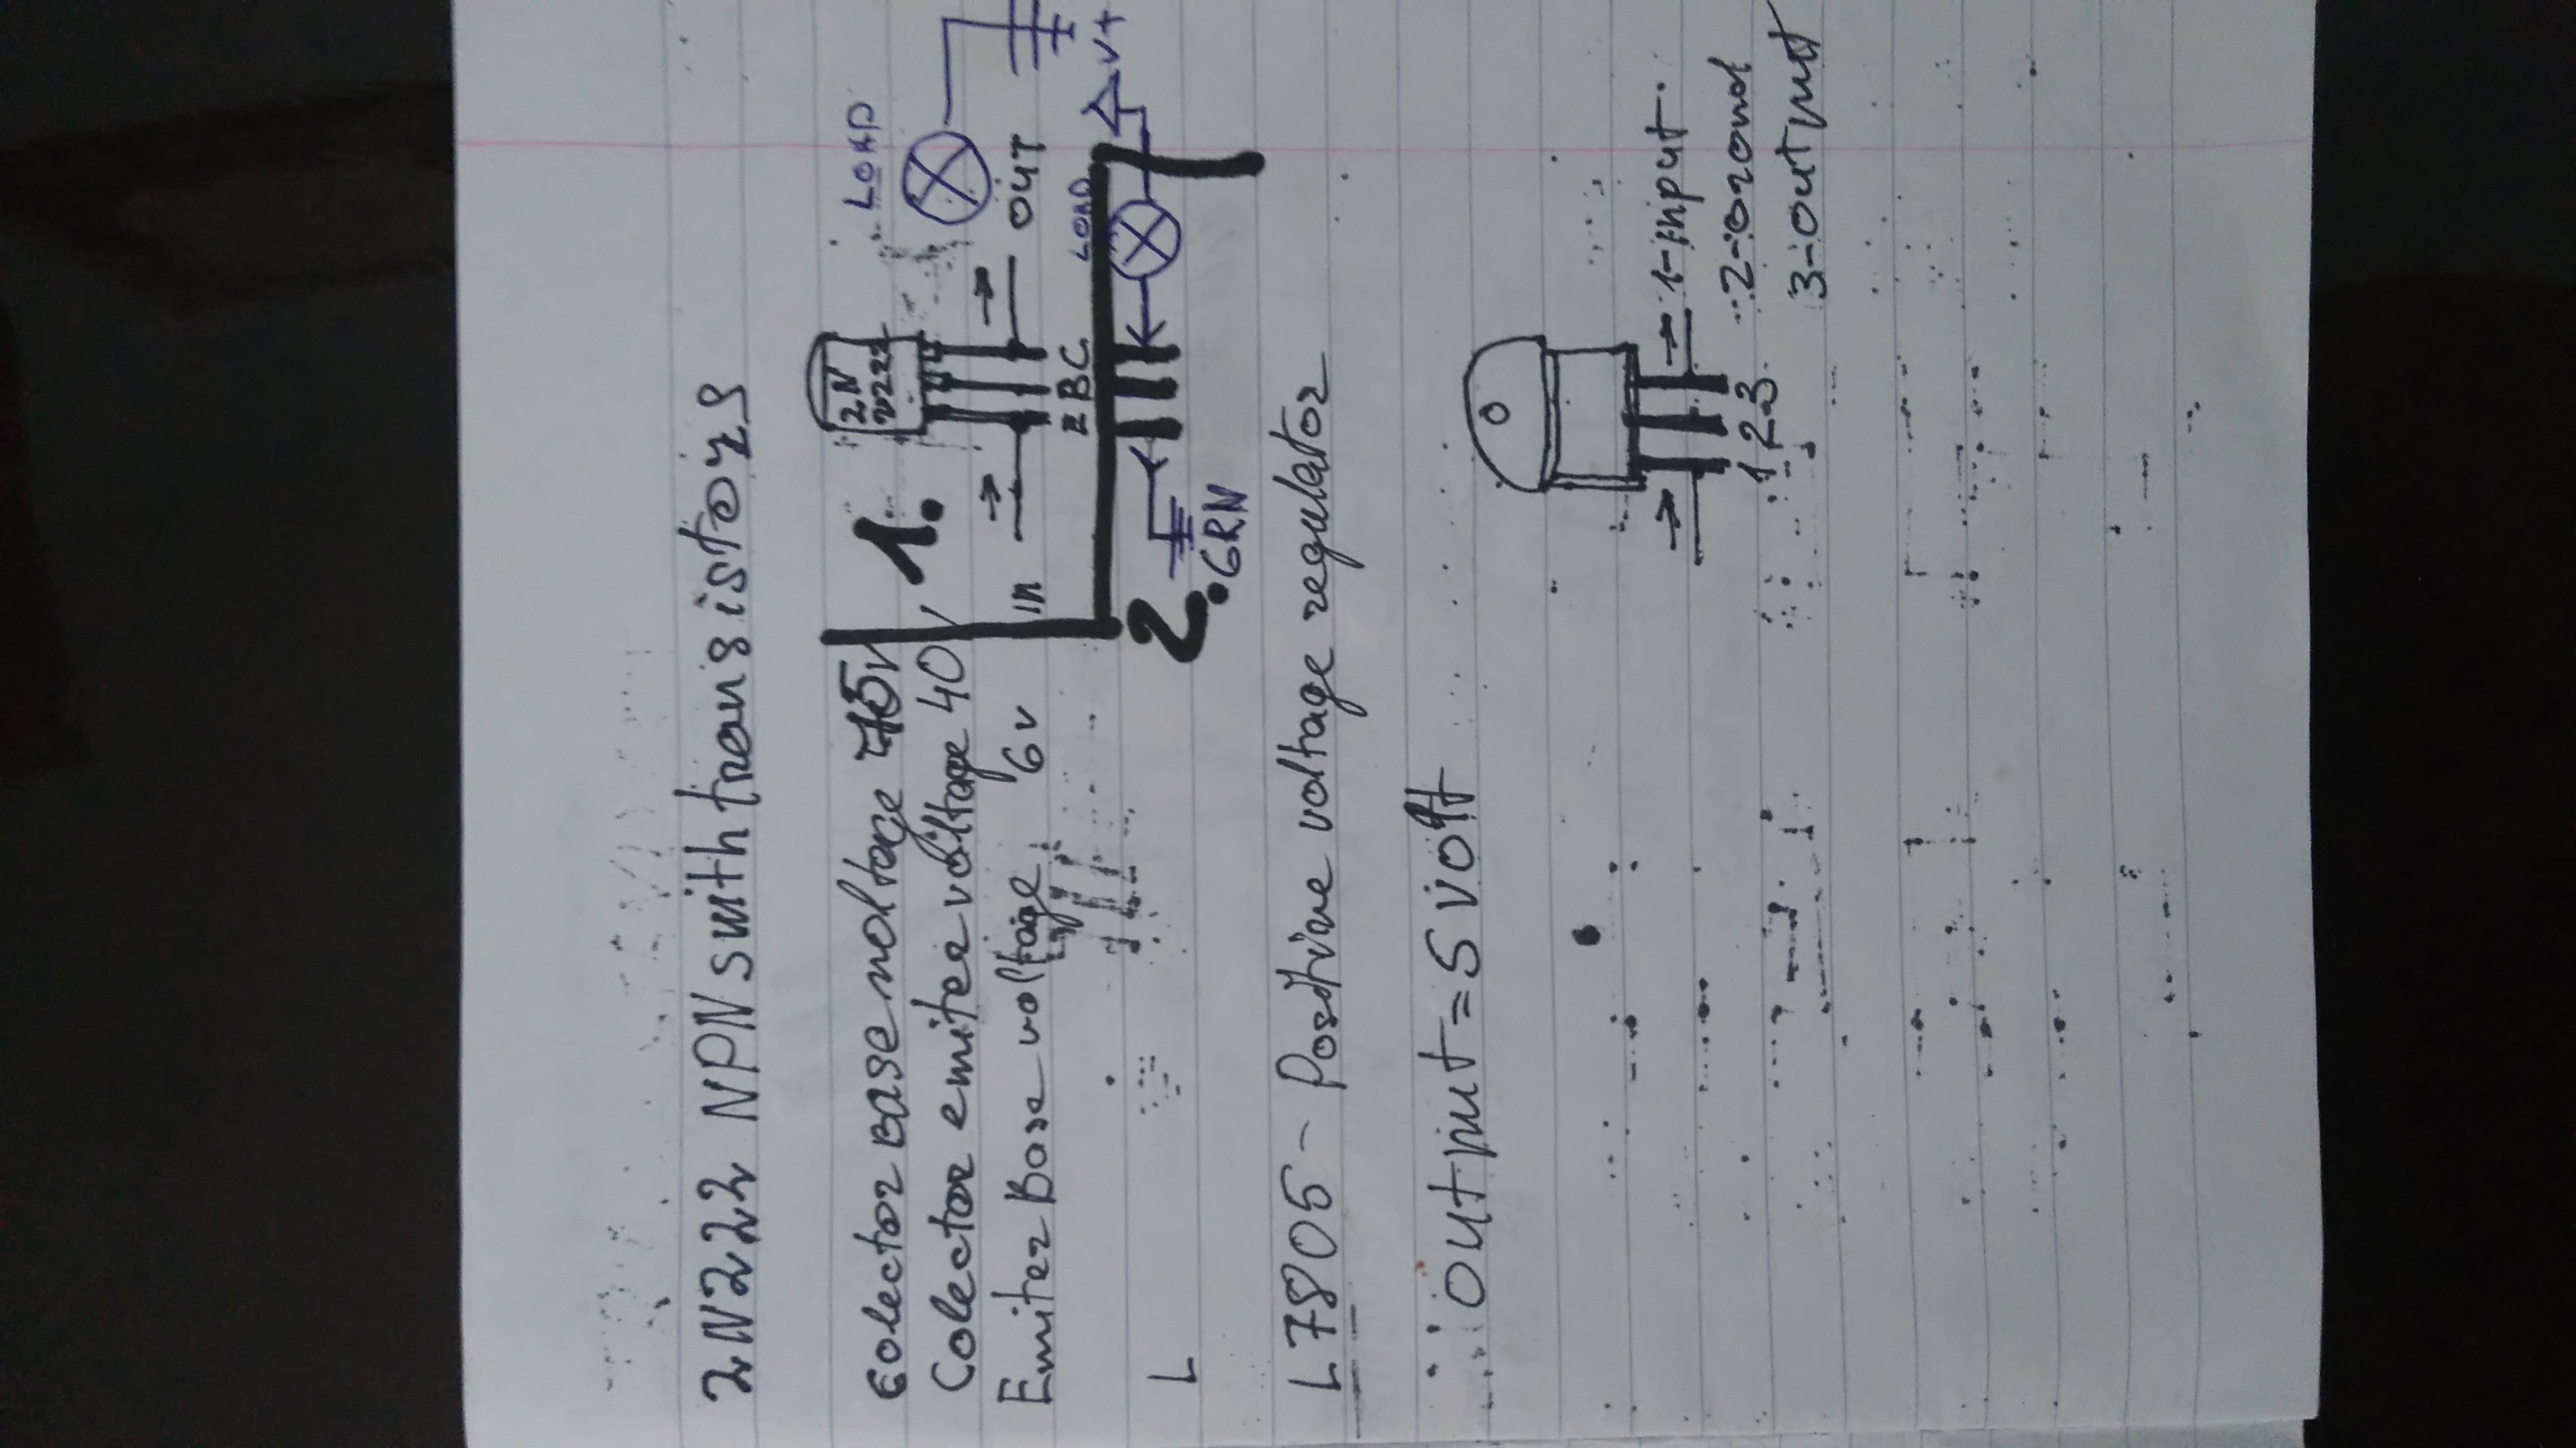 2N2222 NPN swith transistors
Colector Base voltage 75v
Colector emiter voltage 40v
Emiter Base voltage 6v
1.
2N
2222
LOAD
in
out
E B C
LOAD
2.
GRN
V+
L
L7805 - Positive voltage regulator
output = 5 volt
1 2 3
1-input
2-ground
3-output